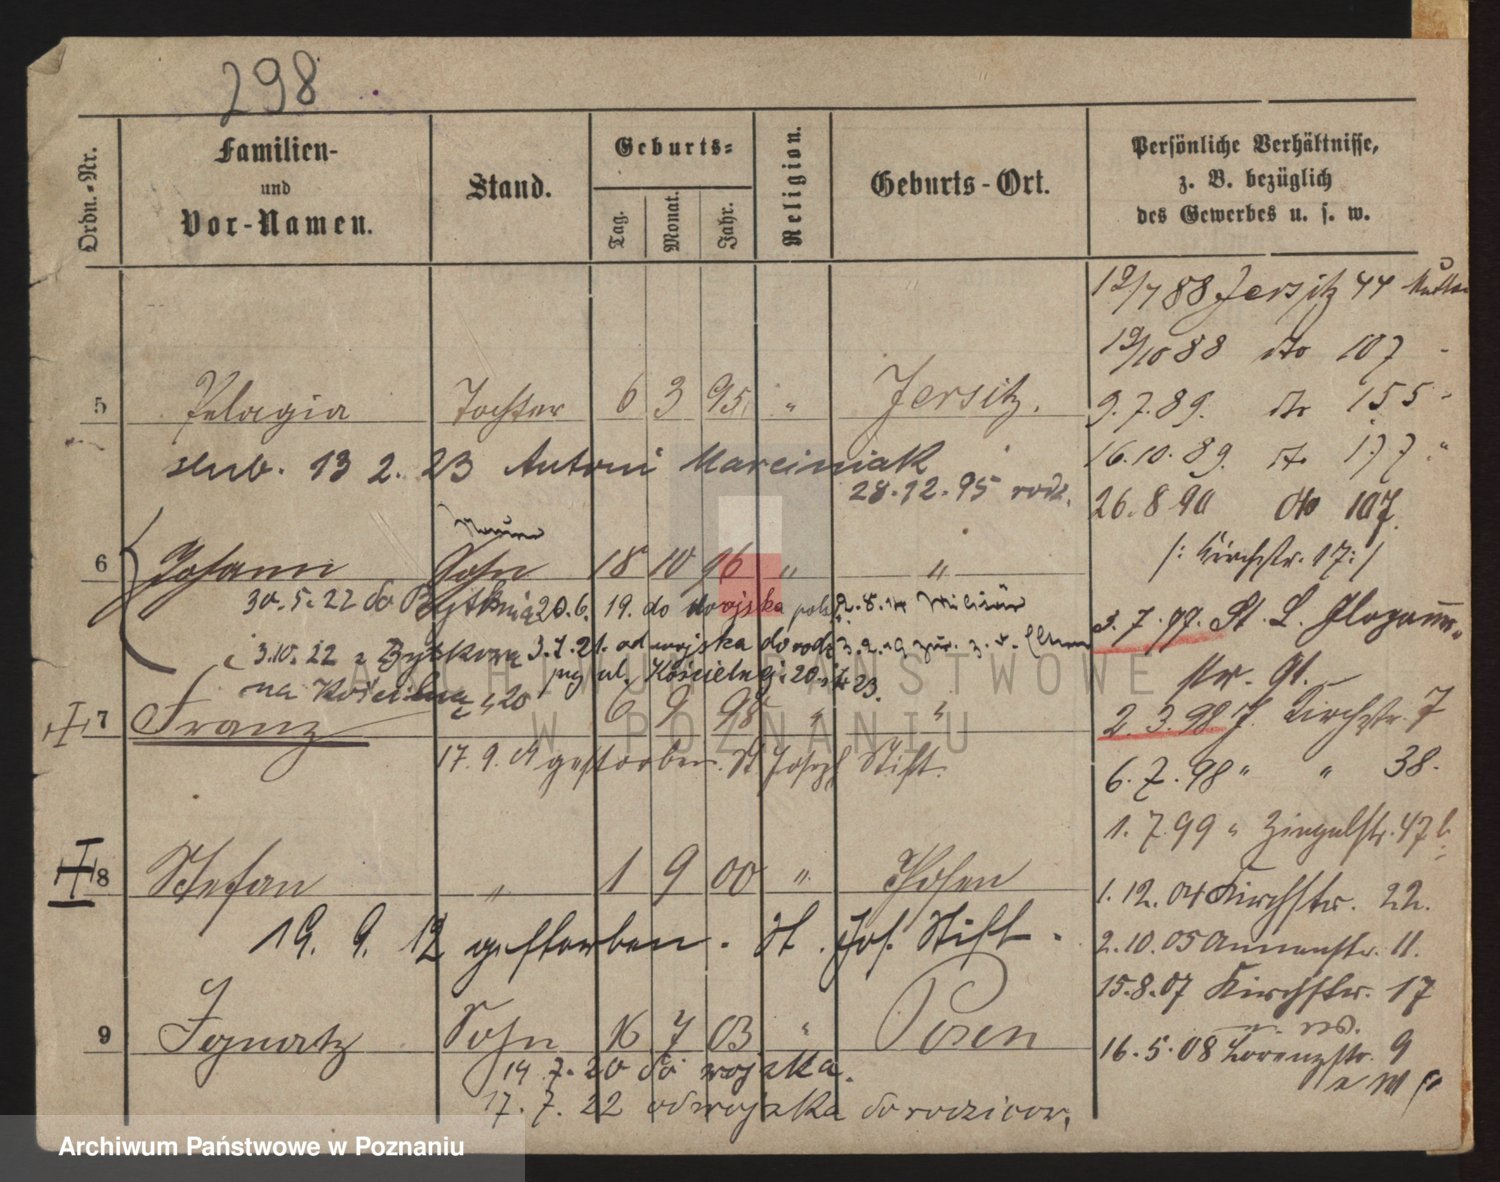 298
Ordn.-Nr.
Familien-
und
Vor-Namen.
Stand.
Geburts-
Tag.
Monat.
Jahr.
Religion.
Geburts-Ort.
Persönliche Verhältnisse,
z. B. bezüglich
des Gewerbes u. s. w.
12/7 88 Jersitz 44
12/10 88 dto 107
5 Pelagia Tochter 6 3 95 " Jersitz.
9.7.89. dto 155
slub. 13 2. 23 Antoni Marciniak
28.12.95 rodz.
16.10.89. dto 177 "
26.8 90 dto 107
/: Kirchstr. 17:/
6 Johann Sohn 18 10 96 " "
30.5.22 do Bytkowa 20.6. 19. do wojska 2.8.14 Militär
3.7.97. St. L. Glogauer-
str. 91.
3.10.22 z Bytkowa 3.7.21. od wojska do rodz 3.2.19 zur.
na Kościelna 20 ul. Kościelnej 20
7 Franz 6 9 98 " "
2.3.98 J. Kirchstr. 7
17.9.01 gestorben. St Joseph Stift.
6.7.98 " " 38.
1.7.99 " Ziegelstr. 47b
8 Stefan " 1 9 00 " Posen
1.12.04 Kirchstr. 22.
19. 9. 12 gestorben. St. Jos. Stift.
2.10.05 Annenstr. 11.
15.8.07 Kirchstr. 17
9 Ignatz Sohn 16 7 03 " Posen
16.5.08 Lorenzstr. 9
14.7.20 do wojska.
17.7.22 od wojska do rodzicow.
ARCHIWUM PAŃSTWOWE
W POZNANIU
Archiwum Państwowe w Poznaniu